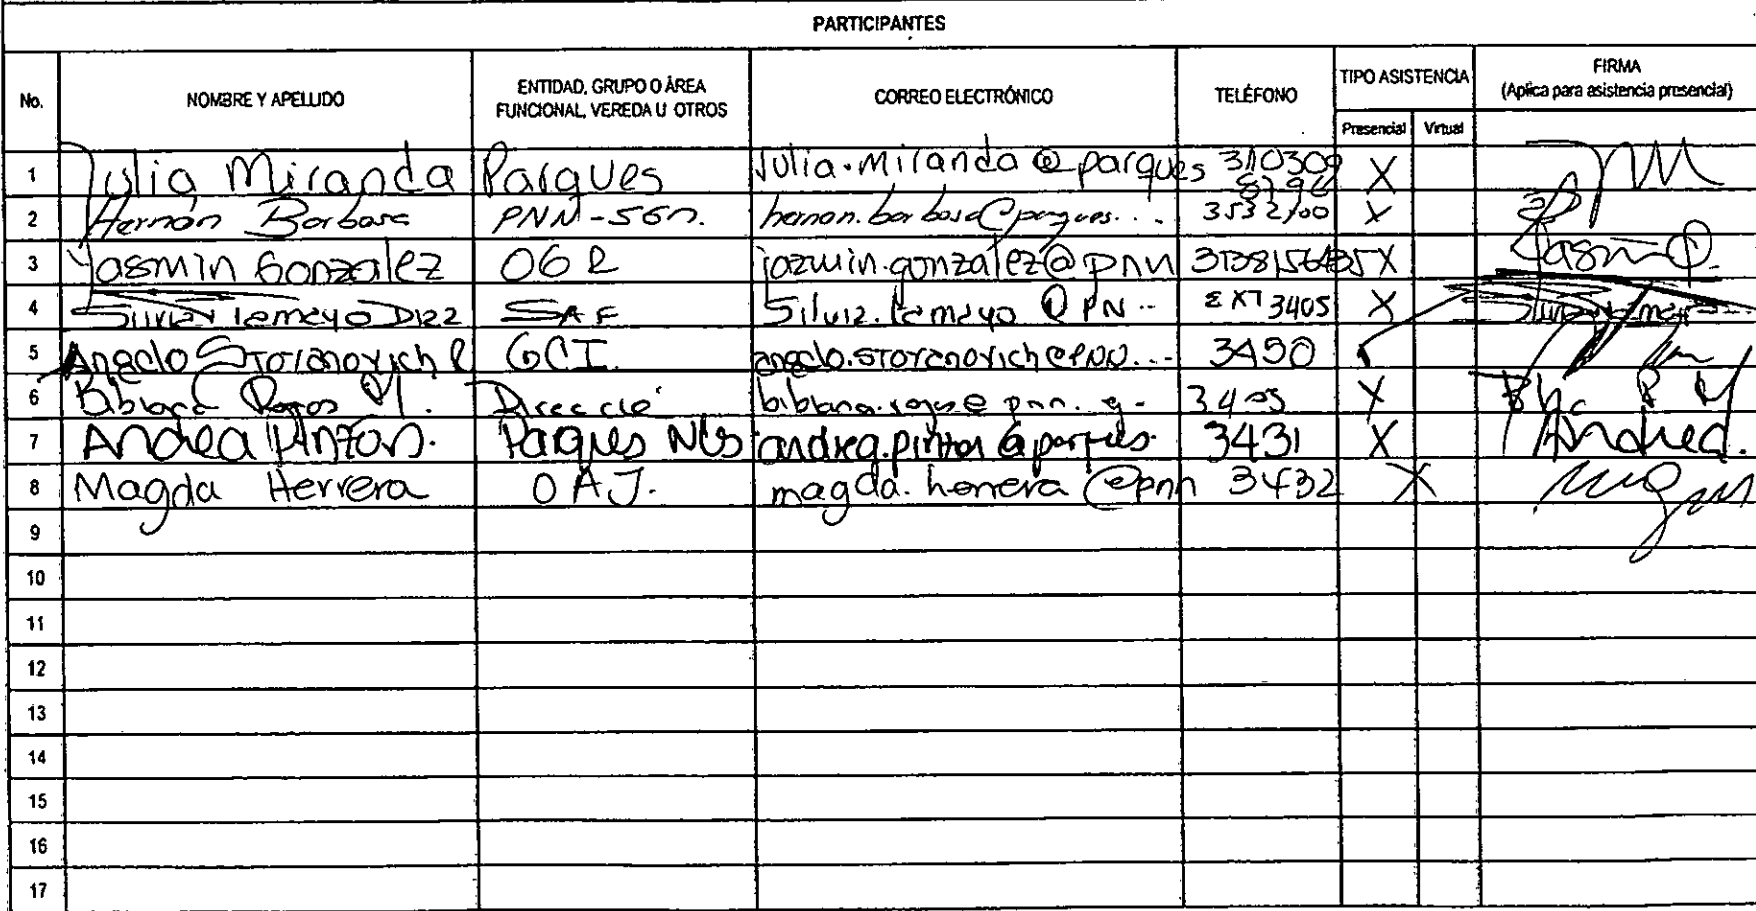 PARTICIPANTES
No. NOMBRE Y APELLIDO ENTIDAD, GRUPO O ÁREA FUNCIONAL, VEREDA U OTROS CORREO ELECTRÓNICO TELÉFONO TIPO ASISTENCIA FIRMA (Aplica para asistencia presencial)
Presencial Virtual
1 Julia Miranda Parques Julia.miranda@parques 310309 8796 X JM
2 Hernán Barbosa PNN-SGM. hernan.barbosa@parques... 3532400 X
3 Yasmin Gonzalez OGR jazmin.gonzalez@pnn 3138156435 X Yasmin G.
4 Silvia Tamayo Diez SAF Silvia.tamayo @PN.. EXT 3405 X Silvia Tamayo
5 Angelo Stoyanovich R GCI. angelo.stoyanovich@pnn... 3450
6 Bibiana Rojas M. Direcció bibiana.rojas@pnn.g- 3405 X
7 Andrea Pinzón. Parques Nles andrea.pinzon@parques. 3431 X Andrea.
8 Magda Herrera OAJ. magda.herrera @pnn 3432 X
9
10
11
12
13
14
15
16
17